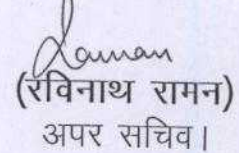 Raman
(रविनाथ रामन)
अपर सचिव।